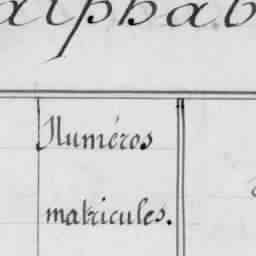 alphab
Numéros
matricules.